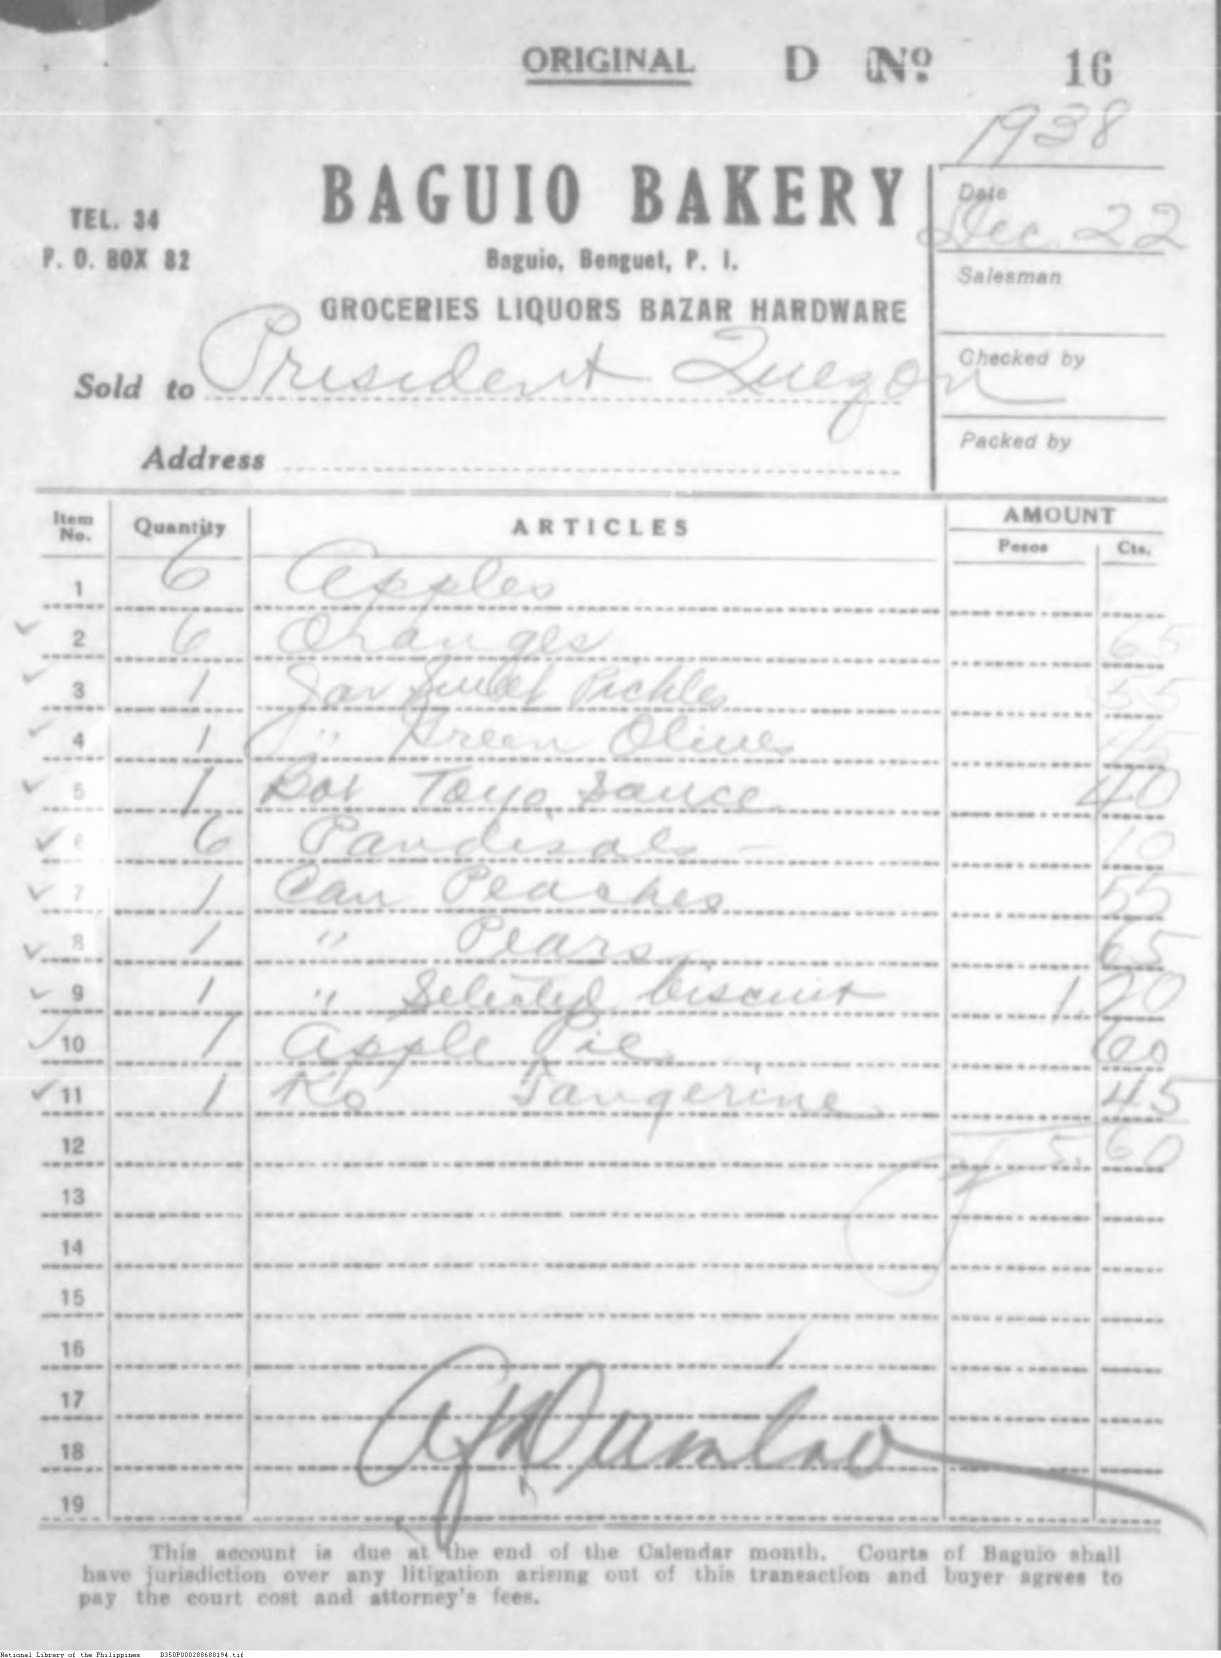 ORIGINAL D No. 16
1938
BAGUIO BAKERY
TEL. 34
P. O. BOX 82
Baguio, Benguet, P. I.
GROCERIES LIQUORS BAZAR HARDWARE
Date
Dec. 22
Salesman
Checked by
Packed by
Sold to President Quezon
Address
Item No. Quantity ARTICLES AMOUNT
Pesos Cts.
1 6 Apples
2 6 Oranges 65
3 1 Jar Sweet Pickles 55
4 1 " Green Olives 45
5 1 Bot Toyo Sauce 40
6 6 Pandisals - 10
7 1 Can Peaches 55
8 1 " Pears 65
9 1 " Selected biscuit 1.20
10 1 Apple Pie 60
11 1 Ko Tangerine 45
12 5.60
13
14
15
16
17
18
19
This account is due at the end of the Calendar month. Courts of Baguio shall
have jurisdiction over any litigation arising out of this transaction and buyer agrees to
pay the court cost and attorney's fees.
National Library of the Philippines D350P000288688194.tif